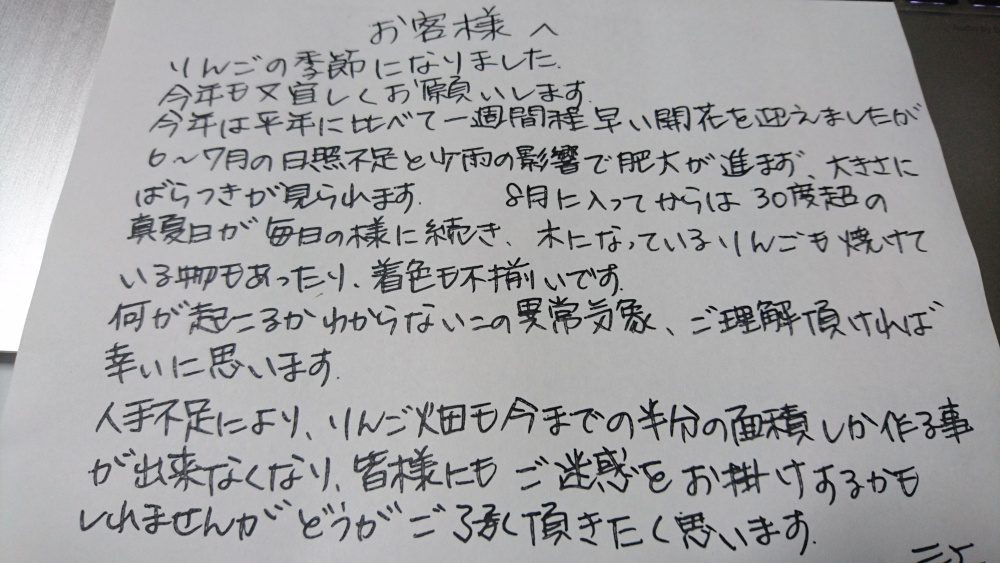 お客様へ
りんごの季節になりました.
今年も又宜しくお願いします.
今年は平年に比べて一週間程早い開花を迎えましたが
6〜7月の日照不足と少雨の影響で肥大が進まず、大きさに
ばらつきが見られます. 8月に入ってからは30度超の
真夏日が毎日の様に続き、木になっているりんごも焼けて
いる物もあったり、着色も不揃いです.
何が起こるかわからないこの異常気象、ご理解頂ければ
幸いに思います.
人手不足により、りんご畑も今までの半分の面積しか作る事
が出来なくなり、皆様にもご迷惑をお掛けするかも
しれませんがどうがご了承頂きたく思います.